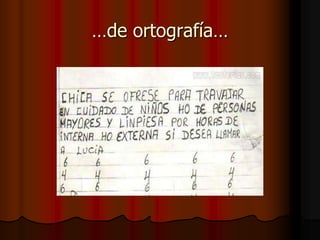 ...de ortografía...
CHICA SE OFRESE PARA TRAVAJAR
EN CUIDADO DE NIÑOS HO DE PERSONAS
MAYORES Y LINPIESA POR HORAS DE
INTERNA HO EXTERNA SI DESEA LLAMAR
A LUCIA
6 6 6 6 6
4 4 4 4 4
6 6 6 6 6